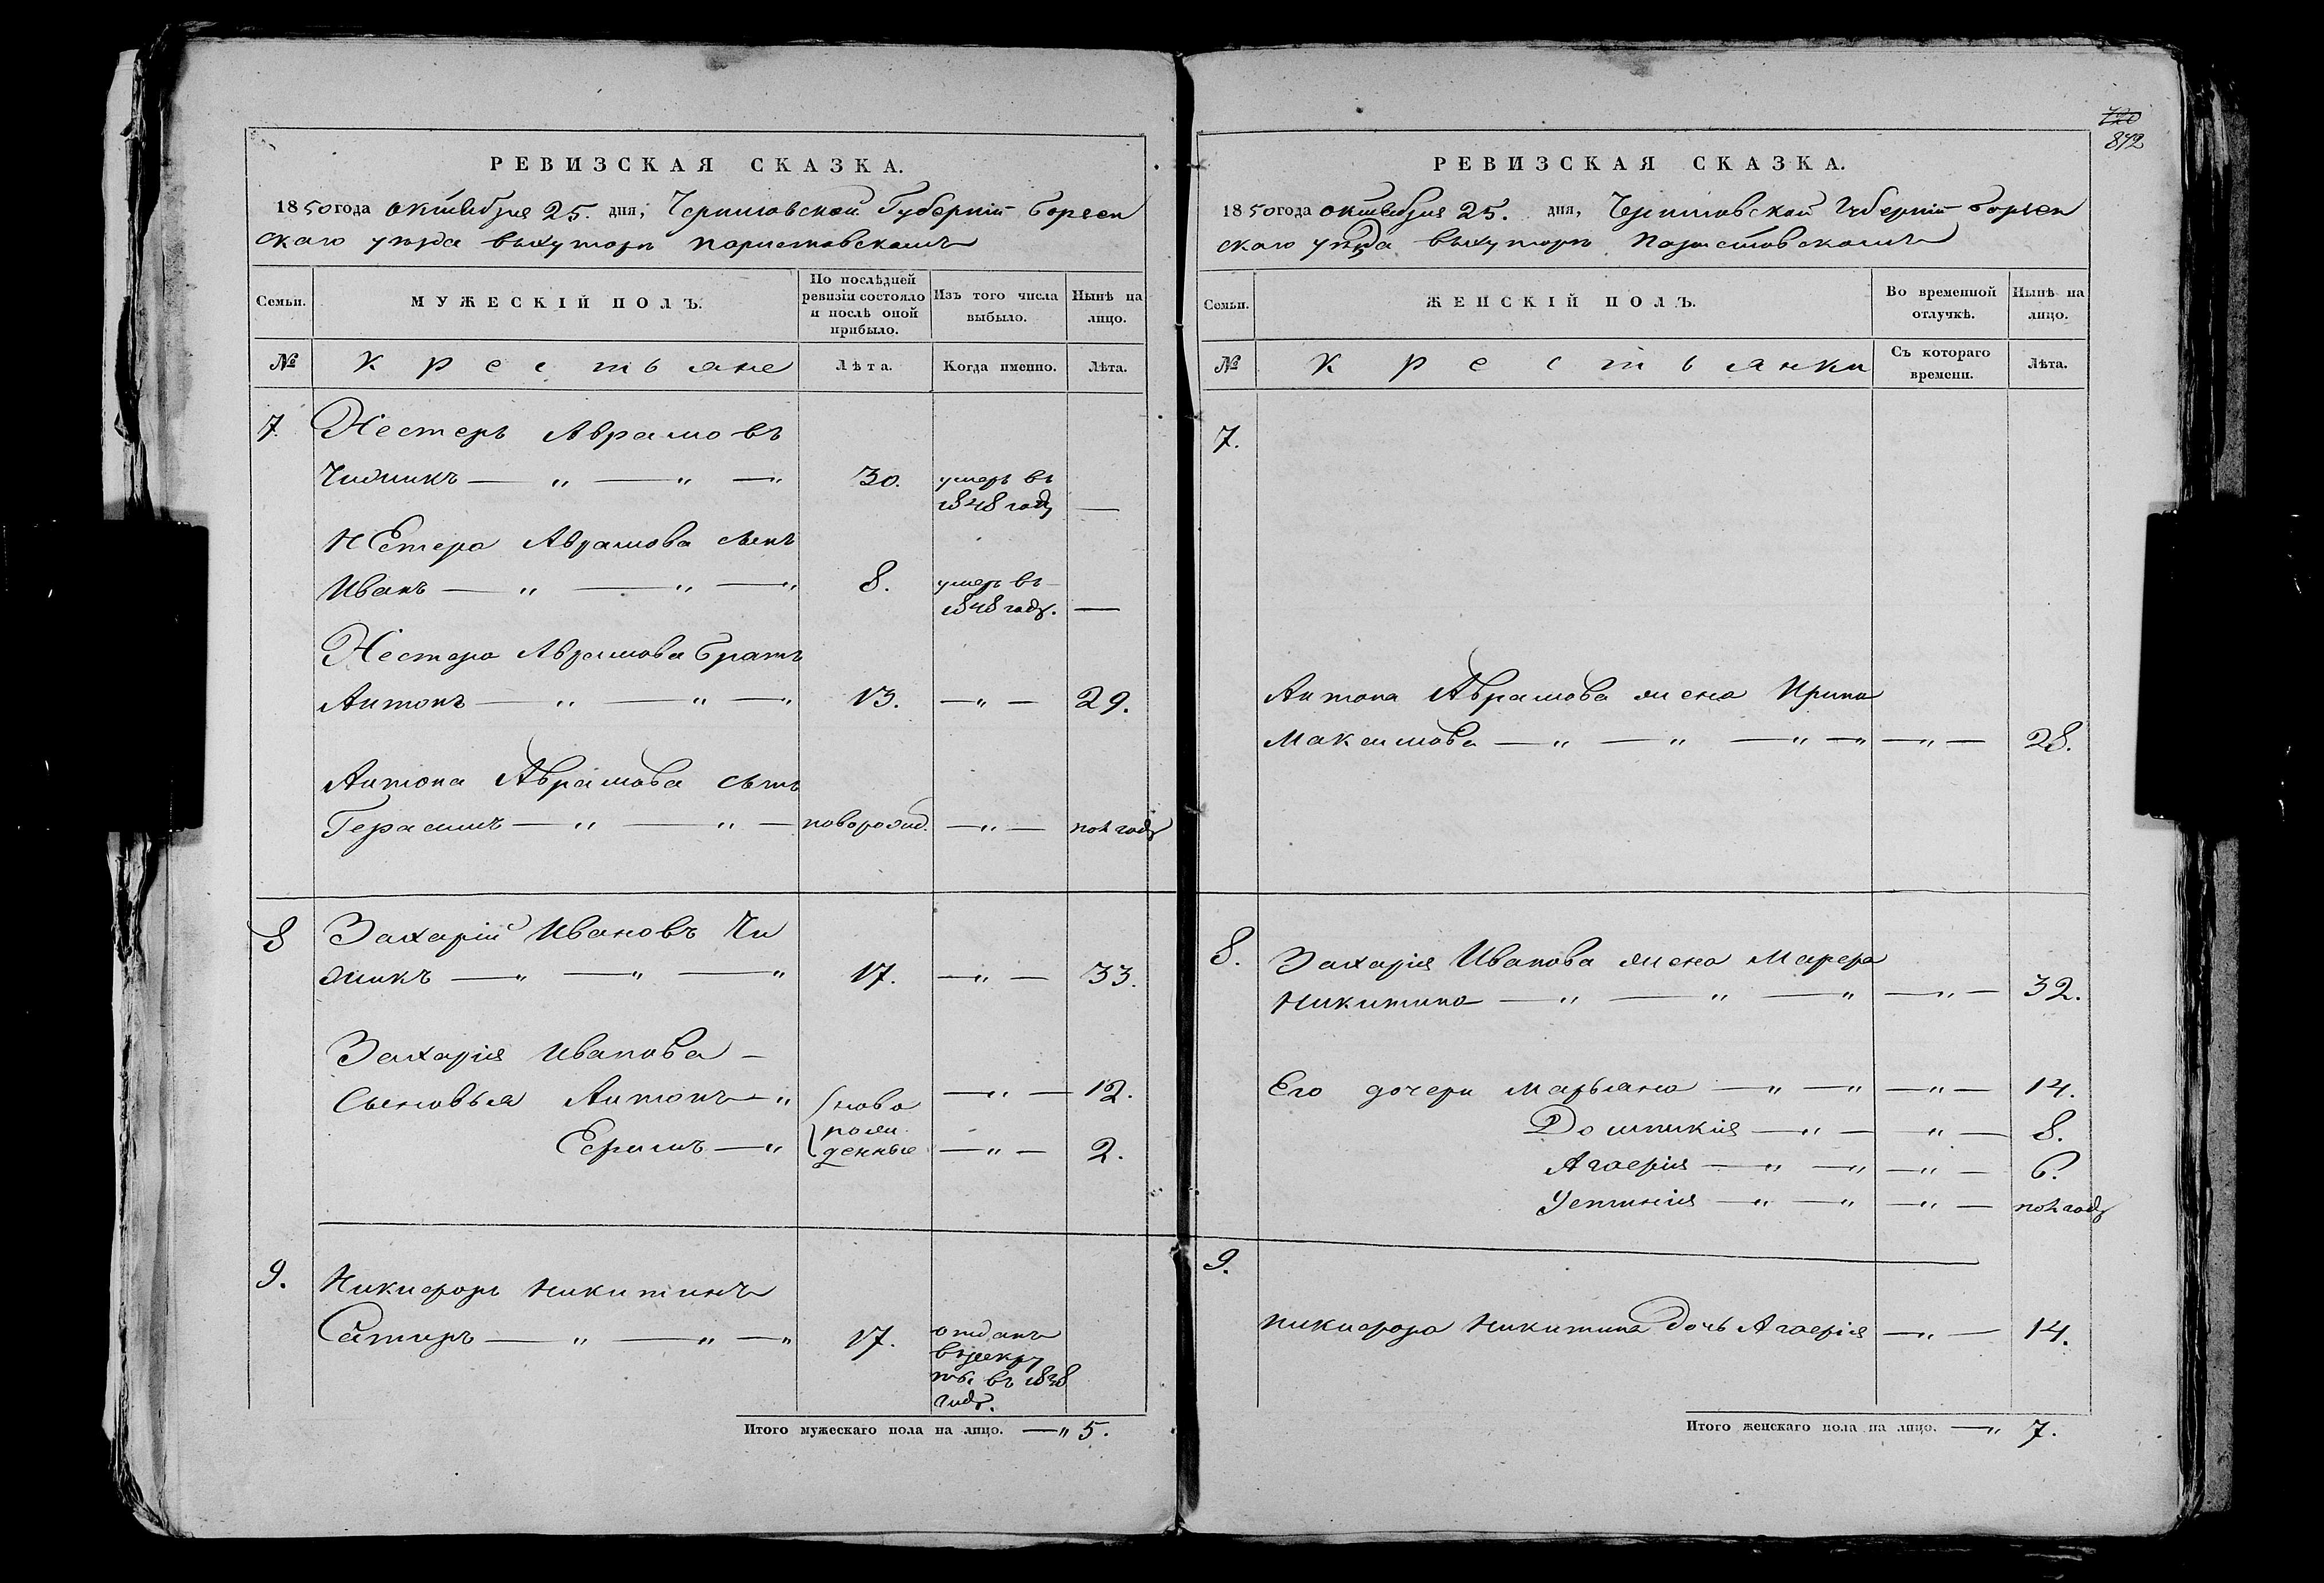 РЕВИЗСКАЯ СКАЗКА.
1850 года октября 25. дня, Черниговской Губерніи Борзен
скаго уѣзда въ хуторѣ
Семьи.
МУЖЕСКІЙ ПОЛЪ.
По послѣдней ревизіи состояло и послѣ оной прибыло.
Изъ того числа выбыло.
Нынѣ на лицо.
№
Крестьяне
Лѣта.
Когда именно.
Лѣта.
7. Нестеръ Аврамовъ
Чижикъ — „ — „ — „ 30. умеръ въ
1848 году —
Нестера Аврамова сынъ
Иванъ — „ — „ — „ 8. умеръ въ
1848 году. —
Нестера Аврамова братъ
Антонъ — „ — „ — „ 13. — „ — 29.
Антона Аврамова сынъ
Герасимъ — „ — „ — новорожд. — „ — полгода
8 Захарій Ивановъ Чи
жикъ — „ — „ — „ 17. — „ — 33.
Захарія Иванова —
Сыновья Антонъ — „ ново — „ — 12.
рож
Ефимъ — „ денные — „ — 2.
9. Никифоръ Никитинъ
— „ — „ — „ 17. отданъ
въ рекру
ты въ 1848
году.
Итого мужескаго пола на лицо. — „ 5.
720
872
РЕВИЗСКАЯ СКАЗКА.
1850 года октября 25. дня, Черниговской Губерніи Борзен
скаго уѣзда въ хуторѣ
Семьи.
ЖЕНСКІЙ ПОЛЪ.
Во временной отлучкѣ.
Нынѣ на лицо.
№
Крестьянки
Съ котораго времени.
Лѣта.
7.
Антона Аврамова жена Ирина
Максимова — „ — „ — „ — „ — „ — 28.
8. Захарія Иванова жена Марфа
Никитина — „ — „ — „ — „ — 32.
Его дочери Марьяна — „ — „ — „ — 14.
Домникія — „ — „ — 8.
Агафія — „ — „ — „ — 6.
Устинія — „ — „ — „ — полгода
9.
Никифора Никитина дочь Агафія — „ — 14.
Итого женскаго пола на лицо. — „ 7.